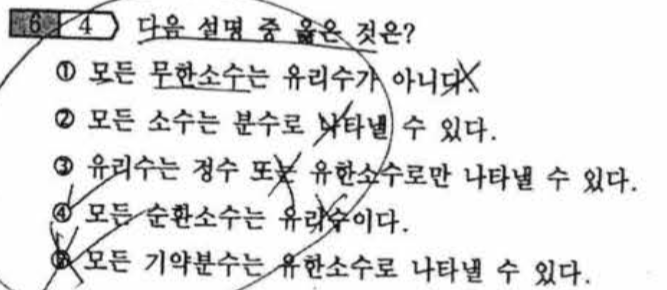 6 4 다음 설명 중 옳은 것은?
① 모든 무한소수는 유리수가 아니다.
② 모든 소수는 분수로 나타낼 수 있다.
③ 유리수는 정수 또는 유한소수로만 나타낼 수 있다.
④ 모든 순환소수는 유리수이다.
⑤ 모든 기약분수는 유한소수로 나타낼 수 있다.